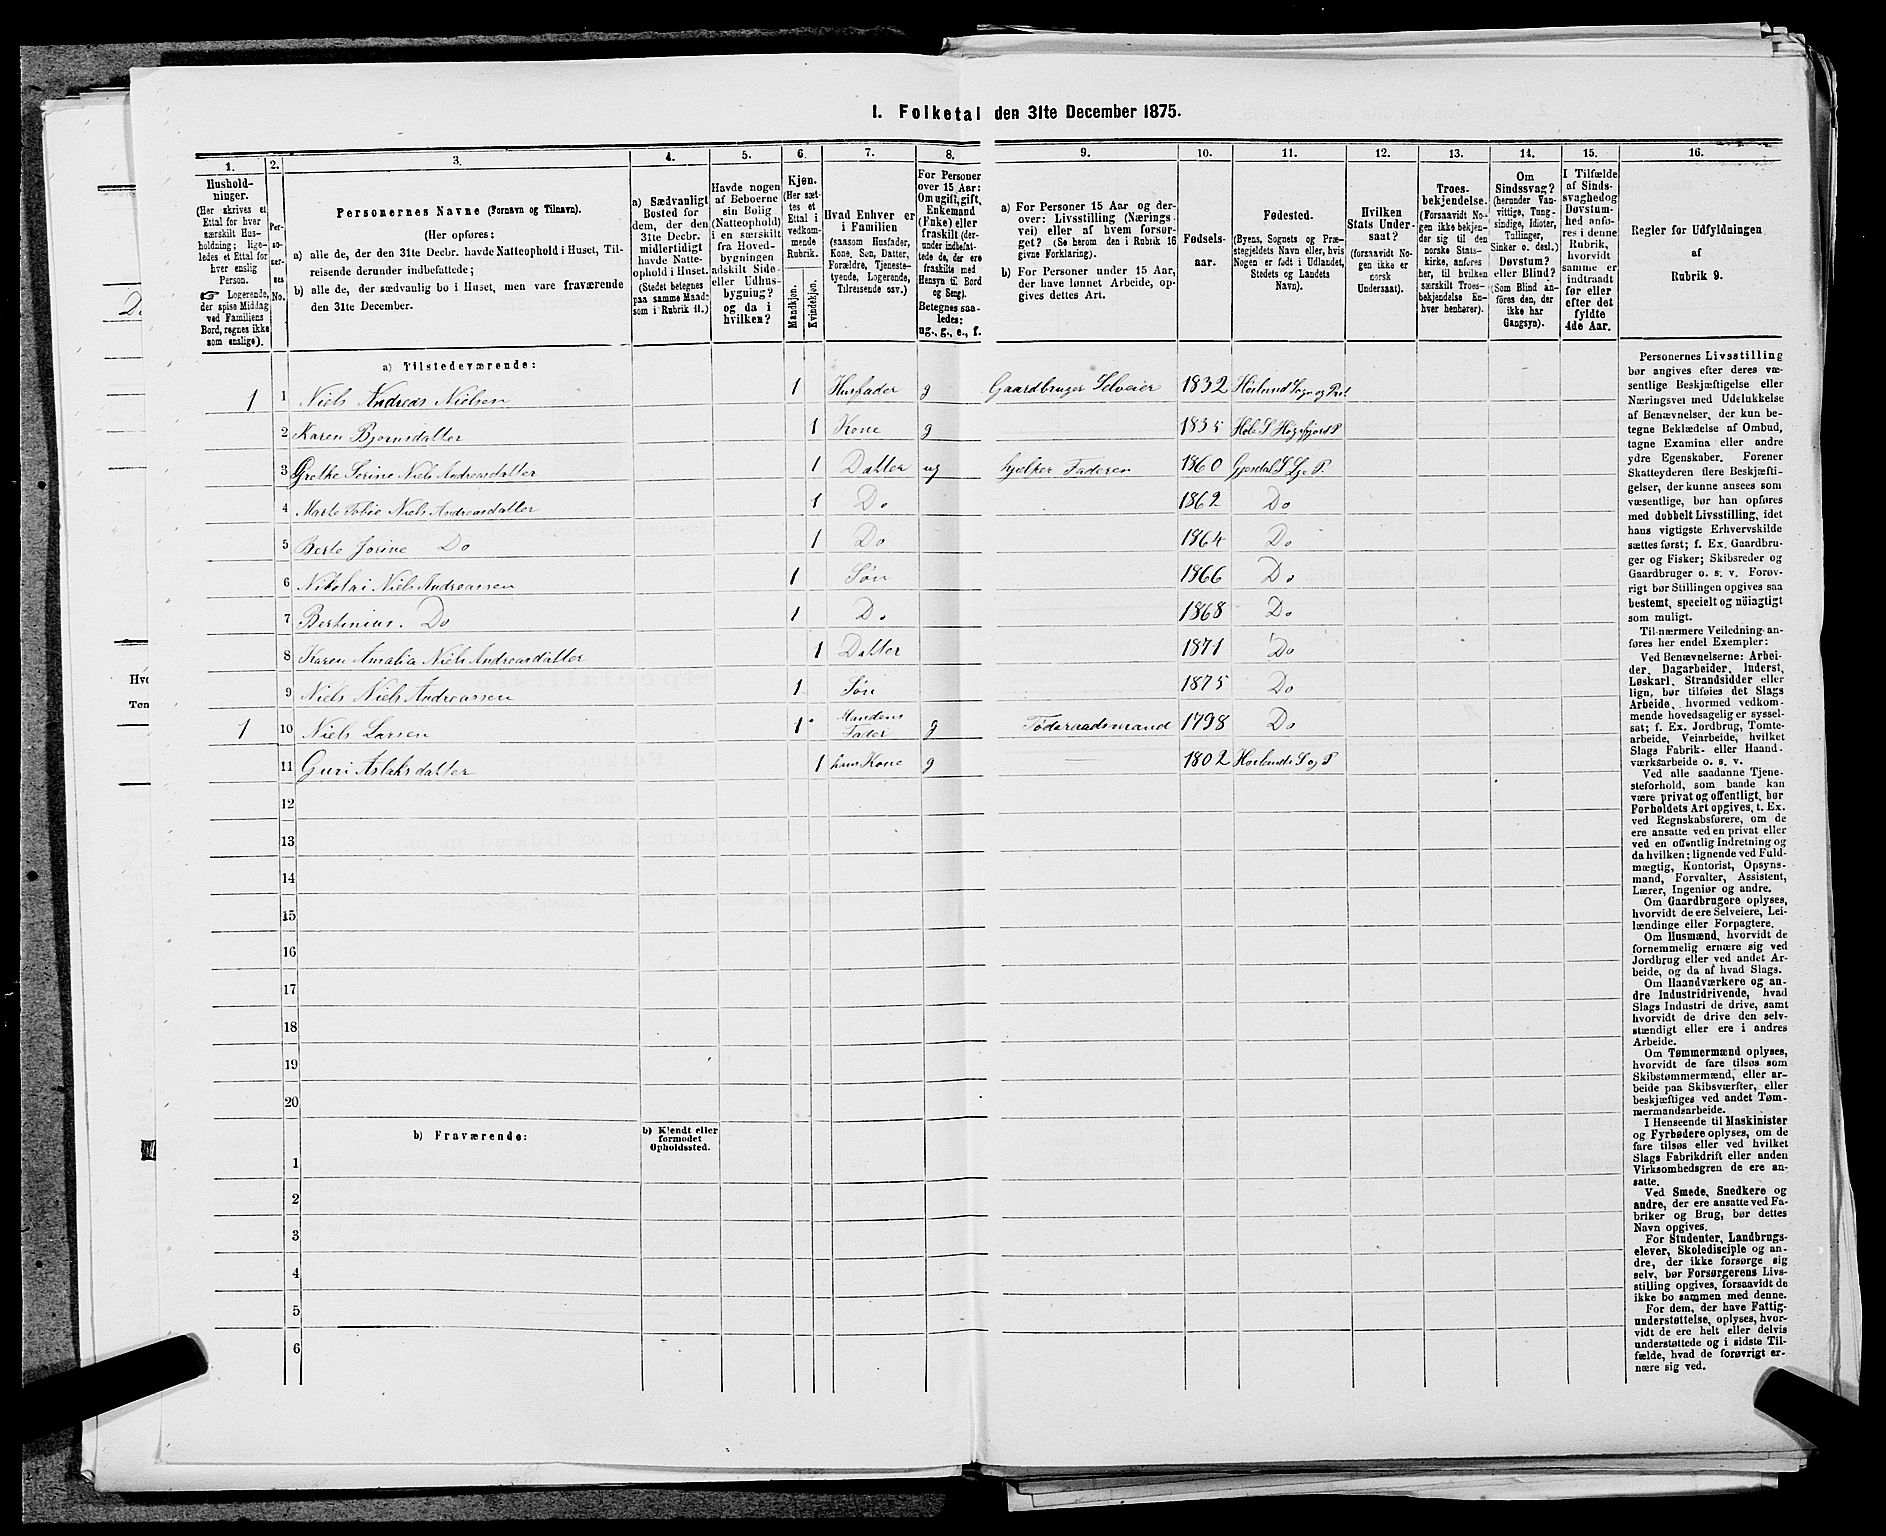 I. Folketal den 31te December 1875.
1. 2. 3. 4. 5. 6. 7. 8. 9. 10. 11. 12. 13. 14. 15. 16.
Hushold-
ninger.
(Her skrives et
Ettal for hver
særskilt Hus-
holdning; lige-
ledes et Ettal for
hver enslig
Person.
☞ Logerende,
der spise Middag
ved Familiens
Bord, regnes ikke
som enslige).
Per-
so-
ner-
nes
No.
Personernes Navne (Fornavn og Tilnavn).
(Her opføres:
a) alle de, der den 31te Decbr. havde Natteophold i Huset, Til-
reisende derunder indbefattede;
b) alle de, der sædvanlig bo i Huset, men vare fraværende
den 31te December.
a) Sædvanligt
Bosted for
dem, der den
31te Decbr.
midlertidigt
havde Natte-
ophold i Huset.
(Stedet betegnes
paa samme Maade
som i Rubrik 11.)
Havde nogen
af Beboerne
sin Bolig
(Natteophold)
i en særskilt
fra Hoved-
bygningen
adskilt Side-
eller Udhus-
bygning?
og da i
hvilken?
Kjøn.
(Her sæt-
tes et
Ettal i
vedkom-
mende
Rubrik.
Mandkjøn.
Kvindekjøn.
Hvad Enhver er
i Familien
(saasom Husfader,
Kone, Søn, Datter,
Forældre, Tjeneste-
tyende, Logerende,
Tilreisende osv.)
For Personer
over 15 Aar:
Om ugift, gift,
Enkemand
(Enke) eller
fraskilt (der-
under indbefat-
tede de, der ere
fraskilte med
Hensyn til Bord
og Seng).
Betegnes saa-
ledes:
ug., g., e., f.
a) For Personer 15 Aar og der-
over: Livsstilling (Nærings-
vei) eller af hvem forsør-
get? (Se herom den i Rubrik 16
givne Forklaring).
b) For Personer under 15 Aar,
der have lønnet Arbeide, op-
gives dettes Art.
Fødsels-
aar.
Fødested.
(Byens, Sognets og Præ-
stegjeldets Navn eller, hvis
Nogen er født i Udlandet,
Stedets og Landets
Navn).
Hvilken
Stats Under-
saat?
(forsaavidt No-
gen ikke er
norsk
Undersaat).
Troes-
bekjendelse.
(Forsaavidt No-
gen ikke bekjen-
der sig til den
norske Stats-
kirke, anføres
her, til hvilken
særskilt Troes-
bekjendelse En-
hver henhører).
Om
Sindssvag?
(herunder Van-
vittige, Tung-
sindige, Idioter,
Tullinger,
Sinker o. desl.)
Døvstum?
eller Blind?
(Som Blind an-
føres den, der
ikke har
Gangsyn).
I Tilfælde
af Sinds-
svaghed og
Døvstum-
hed anfø-
res i denne
Rubrik,
hvorvidt
samme er
indtraadt
før eller
efter det
fyldte
4de Aar.
Regler for Udfyldningen
af
Rubrik 9.
a) Tilstedeværende:
1 1 Niels Andreas Nielsen 1 Husfader g Gaardbruger Selveier 1832 Høilund Sogn og Præst
2 Karen Bjørnsdatter 1 Kone g 1835 Hole S Høgsfjord P
3 Grethe Serine Niels Andreasdatter 1 Datter ug hjelper Faderen 1860 Gjesdal S Lye P.
4 Marte Tobie Niels Andreasdatter 1 Do 1862 Do
5 Berte Jorine Do 1 Do 1864 Do
6 Nikolai Niels Andreassen 1 Søn 1866 Do
7 Bertinius. Do 1 Do 1868 Do
8 Karen Amalia Niels Andreasdatter 1 Datter 1871 Do
9 Niels Niels Andreassen 1 Søn 1875 Do
1 10 Niels Larsen 1 Mandens Fader g Föderaadsmand 1798 Do
11 Guri Aslaksdatter 1 hans Kone g 1802 Høilands S og P
12
13
14
15
16
17
18
19
20
b) Fraværende:
b) Kjendt eller
formodet
Opholdssted.
1
2
3
4
5
6
Personernes Livsstilling
bør angives efter deres væ-
sentlige Beskjæftigelse eller
Næringsvei med Udelukkelse
af Benævnelser, der kun be-
tegne Beklædelse af Ombud,
tagne Examina eller andre
ydre Egenskaber. Forener
Skatteyderen flere Beskjæfti-
gelser, der kunne ansees som
væsentlige, bør han opføres
med dobbelt Livsstilling, idet
hans vigtigste Erhvervskilde
sættes først; f. Ex. Gaardbru-
ger og Fisker; Skibsreder og
Gaardbruger o. s. v. Forøv-
rigt bør Stillingen opgives saa
bestemt, specielt og nöiagtigt
som muligt.
Til nærmere Veiledning an-
føres her endel Exempler:
Ved Benævnelserne: Arbei-
der, Dagarbeider, Inderst,
Løskarl, Strandsidder eller
lign, bør tilføies det Slags
Arbeide, hvormed vedkom-
mende hovedsagelig er syssel-
sat; f. Ex. Jordbrug, Tomte-
arbeide, Veiarbeide, hvilket
Slags Fabrik- eller Haand-
værksarbeide o. s. v.
Ved alle saadanne Tjene-
steforhold, som baade kan
være privat og offentligt, bør
Forholdets Art opgives, t. Ex.
ved Regnskabsførere, om de
ere ansatte ved en privat eller
ved en offentlig Indretning og
da hvilken; lignende ved Fuld-
mægtig, Kontorist, Opsyns-
mand, Forvalter, Assistent,
Lærer, Ingeniør og andre.
Om Gaardbrugere oplyses,
hvorvidt de ere Selveiere, Lei-
lændinge eller Forpagtere.
Om Husmænd, hvorvidt de
fornemmelig ernære sig ved
Jordbrug eller ved andet Ar-
beide, og da af hvad Slags.
Om Haandværkere og an-
dre Industridrivende, hvad
Slags Industri de drive, samt
hvorvidt de drive den selv-
stændigt eller ere i andres
Arbeide.
Om Tømmermænd oplyses,
hvorvidt de fare tilsøs som
Skibstømmermænd, eller ar-
beide paa Skibsværfter, eller
beskjæftiges ved andet Tøm-
mermandsarbeide.
I Henseende til Maskinister
og Fyrbødere oplyses, om de
fare tilsøs eller ved hvilket
Slags Fabrikdrift eller anden
Virksomhedsgren de ere an-
satte.
Ved Smede, Snedkere og
andre, der ere ansatte ved Fa-
briker og Brug, bør dettes
Navn opgives.
For Studenter, Landbrugs-
elever, Skoledisciple og an-
dre, der ikke forsørge sig
selv, bør Forsørgerens Livs-
stilling opgives, forsaavidt de
ikke bo sammen med denne.
For dem, der have Fattig-
understøttelse, oplyses, hvor-
vidt de ere helt eller delvis
understøttede og i sidste Til-
fælde, hvad de forøvrigt er-
nære sig ved.